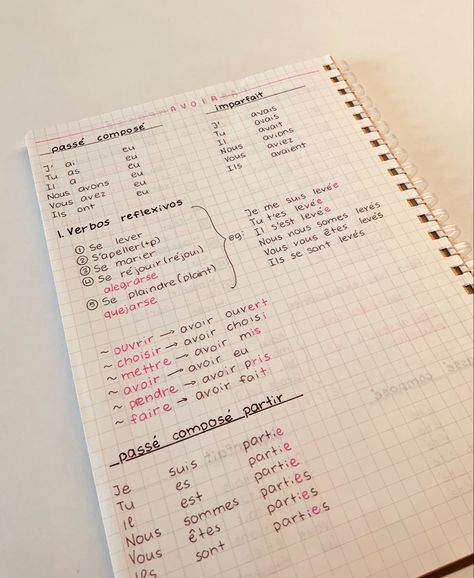 AVOIR
passé composé
J' ai eu
Tu as eu
Il a eu
Nous avons eu
Vous avez eu
Ils ont eu
imparfait
J' avais
Tu avais
Il avait
Nous avions
Vous aviez
Ils avaient
1. Verbos reflexivos
① Se lever
② S'apeller (+p)
③ Se marier
④ Se réjouir (réjoui)
alegrarse
⑤ Se plaindre (plaint)
quejarse
eg:
Je me suis levée
Tu t'es levée
Il s'est levée
Nous nous somes levés
Vous vous êtes levés
Ils se sont levés.
~ ouvrir → avoir ouvert
~ choisir → avoir choisi
~ mettre → avoir mis
~ avoir → avoir eu
~ prendre → avoir pris
~ faire → avoir fait
passé composé partir
Je suis partie
Tu es partie
Il est partie
Nous sommes parties
Vous êtes parties
Ils sont parties